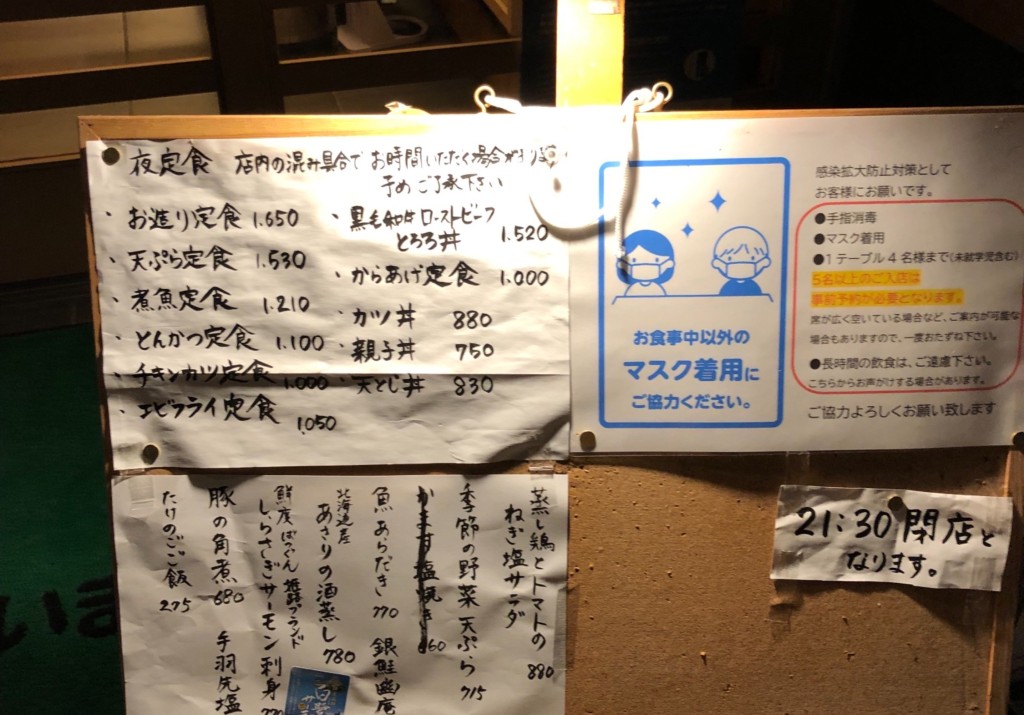 夜定食 店内の混み具合で お時間いただく場合があります
予めご了承下さい
・お造り定食 1.650
・天ぷら定食 1.530
・煮魚定食 1.210
・とんかつ定食 1.100
・チキンカツ定食 1.000
・エビフライ定食 1.050
・黒毛和牛ローストビーフ
とろろ丼 1.520
・からあげ定食 1.000
・カツ丼 880
・親子丼 750
・天とじ丼 830
お食事中以外の
マスク着用に
ご協力ください。
感染拡大防止対策として
お客様にお願いです。
●手指消毒
●マスク着用
●1テーブル4名様まで(未就学児含む)
5名以上のご入店は
事前予約が必要となります。
席が広く空いている場合など、ご案内が可能な
場合もありますので、一度おたずね下さい。
●長時間の飲食は、ご遠慮下さい。
こちらからお声がけする場合があります。
ご協力よろしくお願い致します
蒸し鶏とトマトの
ねぎ塩サラダ 880
季節の野菜天ぷら 715
かます塩焼き 660
魚あらだき 770 銀鮭幽庵
北海道産
あさりの酒蒸し 780
鮮度ばつぐん
しらさぎサーモン刺身
豚の角煮 680 手羽先塩
たけのこご飯 275
21:30 閉店と
なります。